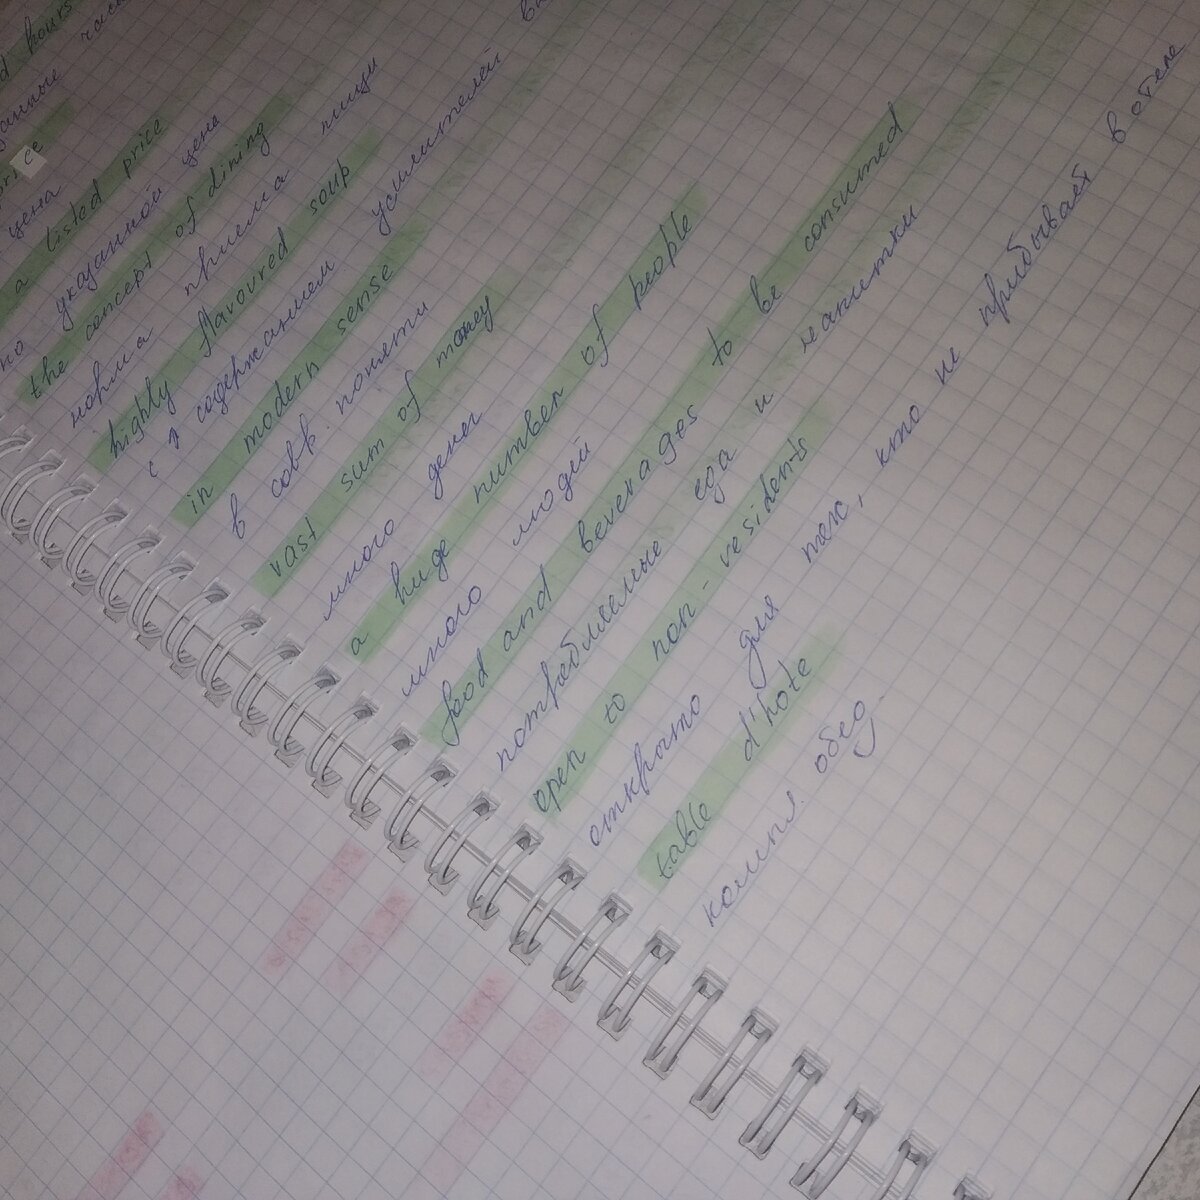 hours
price
цена
a listed price
указанной цене
the concept of dining
норма приема пищи
highly flavoured soup
с ↑ содержанием усилителей
in modern sense
в совр. понятии
vast sum of money
много денег
a huge number of people
много людей
food and beverages to be consumed
потребляемые еда и напитки
open to non-residents
открыто для тех, кто не прибывает в отеле
table d'hote
компл. обед.